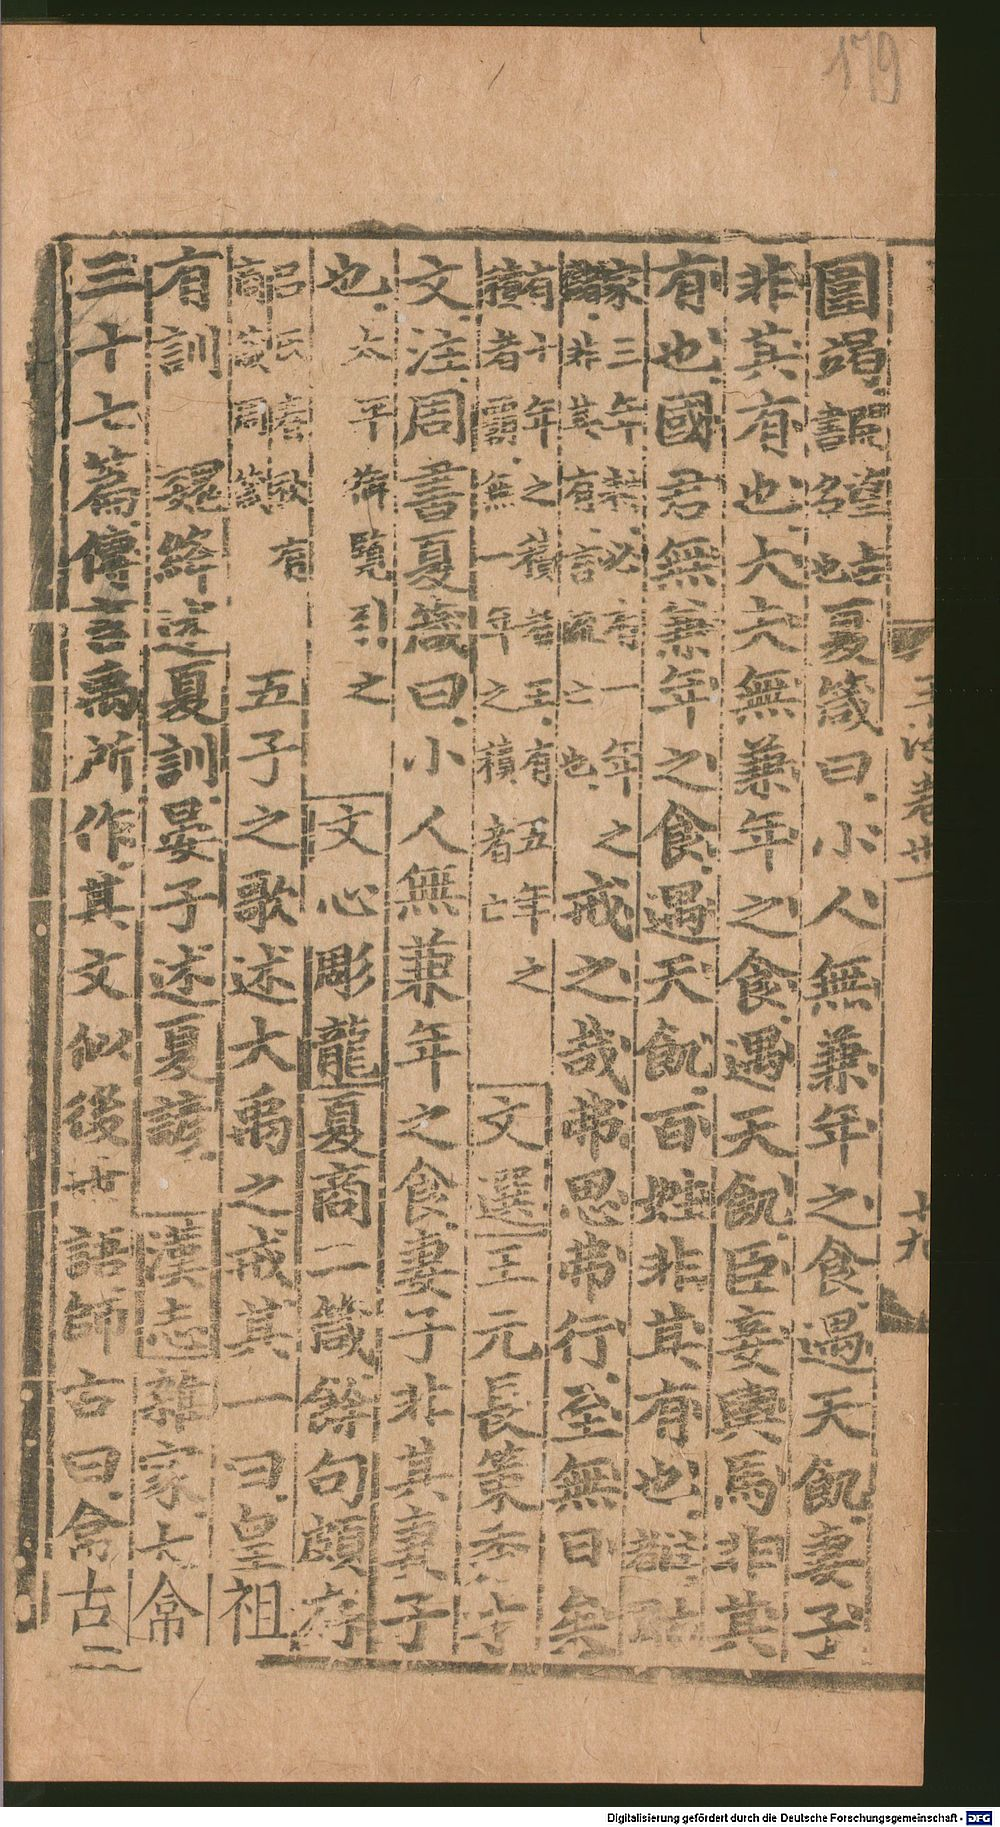 179
圍竭謂望占
詔也夏箴曰小人無兼年之食遇天飢妻子
非其有也大夫無兼年之食遇天飢臣妾輿馬非其
有也國君無兼年之食遇天飢百姓非其有也
家三年 必有一年之
非其有言 亡也戒之哉弗思弗行至無日矣
有十年之積者王有五年之
積者霸無一年之積者亡文選王元長策秀才
文注周書夏箴曰小人無兼年之食妻子非其妻子
也太平御覽引之文心彫龍夏商二箴餘句頗存
呂氏春秋有
商箴周箴五子之歌述大禹之戒其一曰皇祖
有訓 魏絳述夏訓晏子述夏諺漢志雜家大㑅
三十七篇傳言禹所作其文似後世語師古曰㑅古
玉海卷卅一
十九
Digitalisierung gefördert durch die Deutsche Forschungsgemeinschaft - DFG